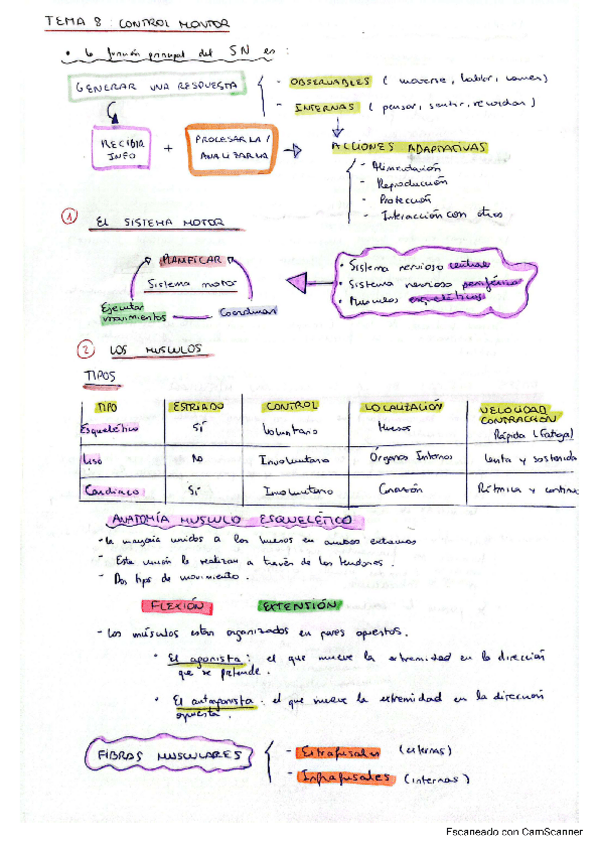 TEMA 8: CONTROL MOTOR
• la función principal del SN es:
GENERAR UNA RESPUESTA
- OBSERVABLES ( moverse, hablar, comer)
- INTERNAS ( pensar, sentir, recordar)
RECIBIR INFO
+
PROCESARLA / ANALIZARLA
ACCIONES ADAPTATIVAS
- Alimentación
- Reproducción
- Protección
- Interacción con otros
1 EL SISTEMA MOTOR
PLANIFICAR
Sistema motor
Ejecutar movimientos
Coordinar
• Sistema nervioso central
• Sistema nervioso periférico
• Músculos esqueléticos
2 LOS MUSCULOS
TIPOS
TIPO ESTRIADO CONTROL LOCALIZACIÓN VELOCIDAD CONTRACCIÓN
Esquelético Sí Voluntario Huesos Rápida (Fatiga)
Liso No Involuntario Órganos Internos Lenta y sostenida
Cardiaco Sí Involuntario Corazón Rítmica y continua
ANATOMÍA MUSCULO ESQUELÉTICO
- la mayoría unidos a los huesos en ambos extremos
- Esta unión la realizan a través de los tendones.
- Dos tipos de movimiento.
FLEXIÓN EXTENSIÓN
- Los músculos están organizados en pares opuestos.
• El agonista: el que mueve la extremidad en la dirección
que se pretende.
• El antagonista: el que mueve la extremidad en la dirección
opuesta.
FIBRAS MUSCULARES
- Extrafusales (externas)
- Intrafusales (internas)
Escaneado con CamScanner